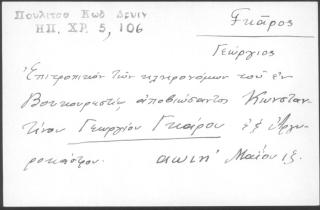 Πουλίτσα Κωδ Δενιν
ΗΠ. ΧΡ. 5, 106
Γκάρος
Γεώργιος
Ἐπιτροπικὸν τῶν κληρονόμων τοῦ ἐν
Βουκουρεστίῳ ἀποβιώσαντος Κωνσταν
τίνου Γεωργίου Γκάρου ἐξ Ἀργυ
ροκάστρου. αωιη' Μαΐου ις.